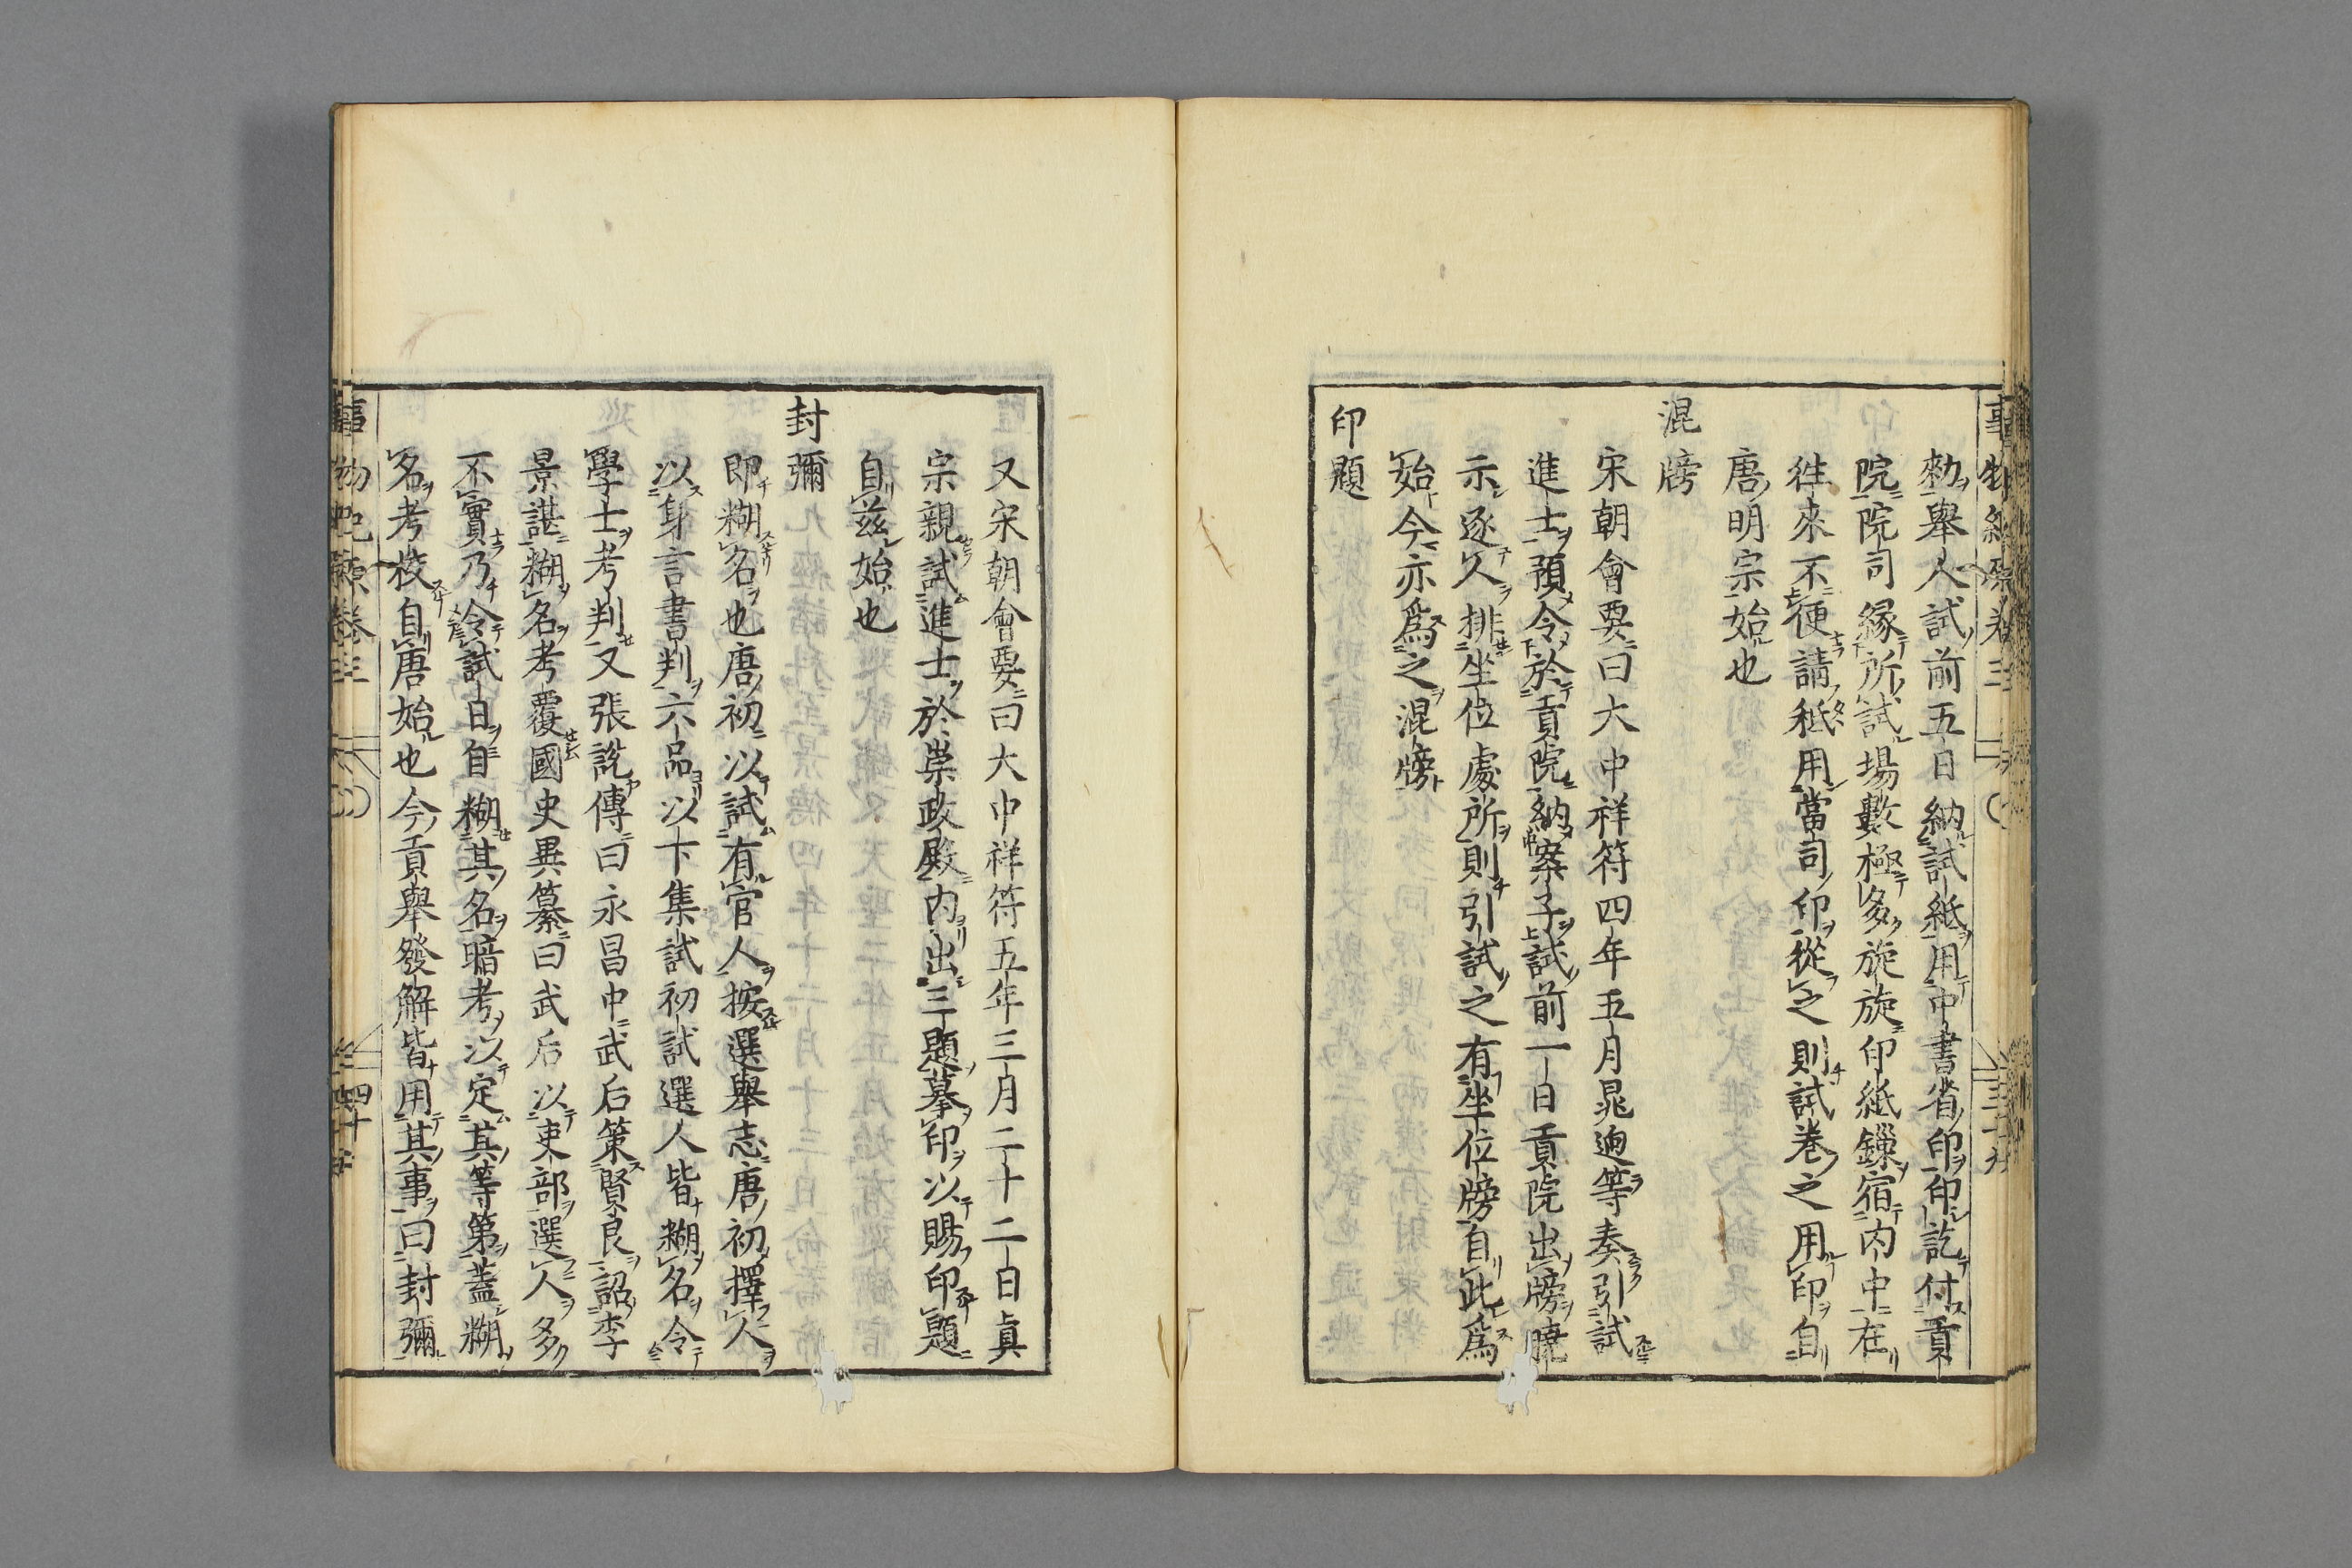 勑舉人試前五日納試紙用中書省印印訖付貢
院院司縁所試場數極多旋旋印紙鏁宿内中在
徃來不便請紙用當司印從之則試卷之用印自
唐明宗始也
混牓
宋朝會要曰大中祥符四年五月晁迥等奏引試
進士預令於貢院納案子試前一日貢院出牓曉
示逐人排坐位處所則引試之有坐位牓自此爲
始今亦爲之混牓
印題
又宋朝會要曰大中祥符五年三月二十二日眞
宗親試進士於崇政殿内出三題摹印以賜印題
自兹始也
封彌
即糊名也唐初以試有官人按選舉志唐初擇人
以身言書判六品以下集試初試選人皆糊名令
學士考判又張説傳曰永昌中武后策賢良詔李
景諶糊名考覆國史異纂曰武后以吏部選人多
不實乃令試日自糊其名暗考以定其等第蓋糊
名考校自唐始也今貢舉發解皆用其事曰封彌